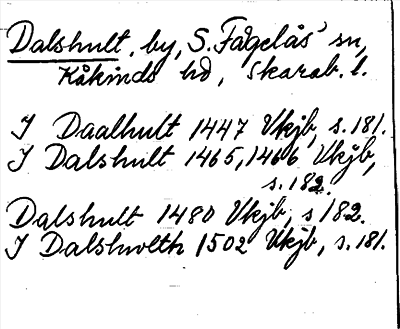 Dalshult, by, S. Fågelås sn,
Kåkinds hd, Skarab. l.
I Daalhult 1447 Vkjb, s. 181.
I Dalshult 1465, 1466 Vkjb,
s. 182.
Dalshult 1480 Vkjb, s 182.
I Dalshwlth 1502 Vkjb, s. 181.